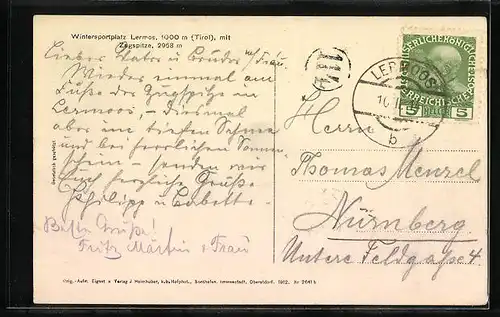 Wintersportplatz Lermos, 1000 m (Tirol), mit
Zugspitze, 2968 m
Lieber Vater u Bruder u/ Frau.
Wieder einmal am
Fuße der Zugspitze in
Lermoos – diesmal
aber im tiefen Schnee
und bei herrlichem Sonnen
schein – senden wir
Euch herzliche Grüße
Philipp u Babette.
Beste Grüße!
Fritz Martin u Frau
111
LERMOOS
b
5
Herrn
Thomas Menzel
Nürnberg
Untere Feldgasse 4.
Orig.-Aufn. Eigent u Verlag J Heimhuber, k.b.Hofphot., Sonthofen, Immenstadt, Oberstdorf. 1912. Nr 2641 b